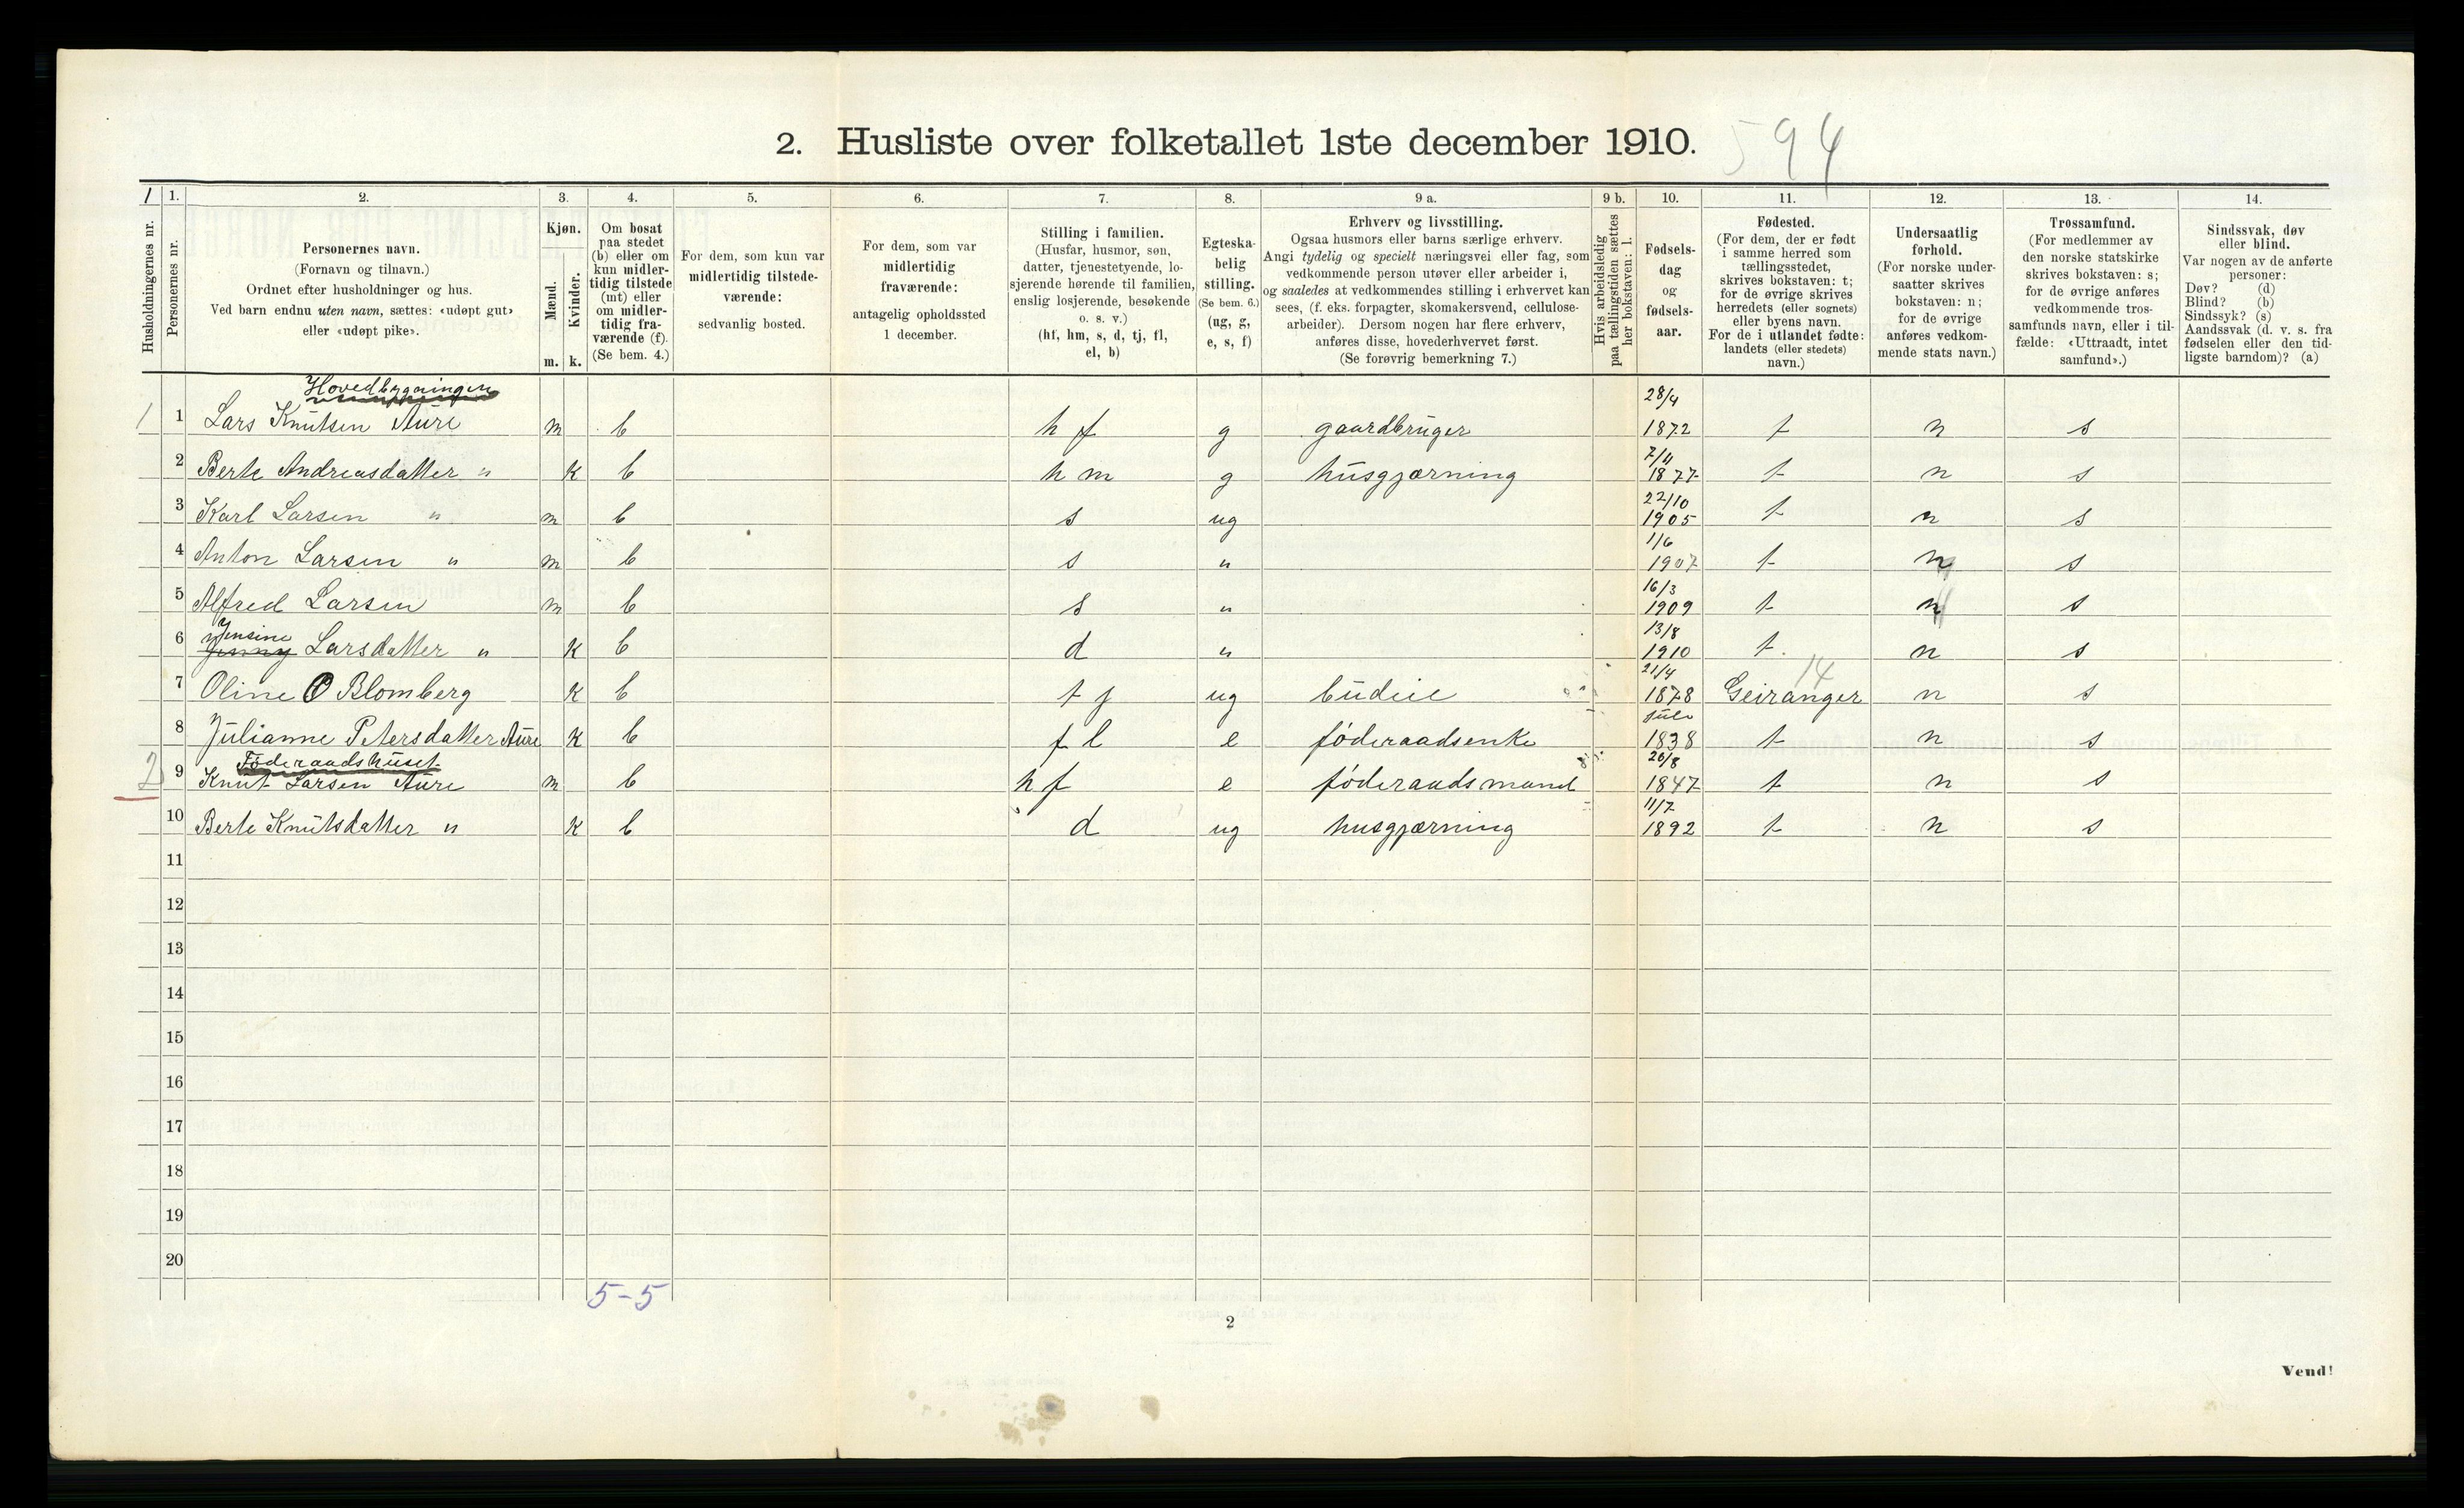 2. Husliste over folketallet 1ste december 1910. 594
1 1. 2. 3. 4. 5. 6. 7. 8. 9 a. 9 b. 10. 11. 12. 13. 14.
Husholdningernes nr.
Personernes nr.
Personernes navn.
(Fornavn og tilnavn.)
Ordnet efter husholdninger og hus.
Ved barn endnu uten navn, sættes: «udøpt gut»
eller «udøpt pike».
Kjøn.
Mænd.
Kvinder.
m. k.
Om bosat
paa stedet
(b) eller om
kun midler-
tidig tilstede
(mt) eller
om midler-
tidig fra-
værende (f).
(Se bem. 4.)
For dem, som kun var
midlertidig tilstede-
værende:
sedvanlig bosted.
For dem, som var
midlertidig
fraværende:
antagelig opholdssted
1 december.
Stilling i familien.
(Husfar, husmor, søn,
datter, tjenestetyende, lo-
sjerende hørende til familien,
enslig losjerende, besøkende
o. s. v.)
(hf, hm, s, d, tj, fl,
el, b)
Egteska-
belig
stilling.
(Se bem. 6.)
(ug, g,
e, s, f)
Erhverv og livsstilling.
Ogsaa husmors eller barns særlige erhverv.
Angi tydelig og specielt næringsvei eller fag, som
vedkommende person utøver eller arbeider i,
og saaledes at vedkommendes stilling i erhvervet kan
sees, (f. eks. forpagter, skomakersvend, cellulose-
arbeider). Dersom nogen har flere erhverv,
anføres disse, hovederhvervet først.
(Se forøvrig bemerkning 7.)
Hvis arbeidsledig
paa tællingstiden sættes
her bokstaven: l.
Fødsels-
dag
og
fødsels-
aar.
Fødested.
(For dem, der er født
i samme herred som
tællingsstedet,
skrives bokstaven: t;
for de øvrige skrives
herredets (eller sognets)
eller byens navn.
For de i utlandet fødte:
landets (eller stedets)
navn.)
Undersaatlig
forhold.
(For norske under-
saatter skrives
bokstaven: n;
for de øvrige
anføres vedkom-
mende stats navn.)
Trossamfund.
(For medlemmer av
den norske statskirke
skrives bokstaven: s;
for de øvrige anføres
vedkommende tros-
samfunds navn, eller i til-
fælde: «Uttraadt, intet
samfund».)
Sindssvak, døv
eller blind.
Var nogen av de anførte
personer:
Døv? (d)
Blind? (b)
Sindssyk? (s)
Aandssvak (d. v. s. fra
fødselen eller den tid-
ligste barndom)? (a)
Hovedbygningen
1 1 Lars Knutsen Aure m b h f g gaardbruger 28/4 1872 t n s
2 Berte Andreasdatter " k b h m g husgjærning 7/11 1877 t n s
3 Karl Larsen " m b s ug 22/10 1905 t n s
4 Anton Larsen " m b s " 1/6 1907 t n s
5 Alfred Larsen m b s " 16/3 1909 t n s
6 Jensine Jenny Larsdatter " k b d " 13/8 1910 t. n s
7 Oline O Blomberg k b t j ug budeie 21/4 1878 Geiranger 14 n s
8 Julianne Petersdatter Aure k b f l e föderaadsenke juli 1838 t n s
Föderaadshuset
2 9 Knut Larsen Aure m b h f e föderaadsmand 20/8 1847 t n s
10 Berte Knutsdatter " k b d ug husgjærning 11/7 1892 t n s
11
12
13
14
15
16
17
18
19
20
5-5
2
Vend!